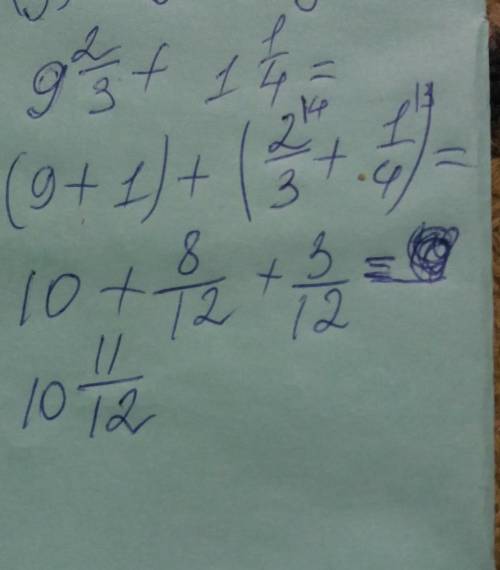 9 2/3 + 1 1/4 =
(9 + 1) + (2/3 ^14 + 1/4 ^13) =
10 + 8/12 + 3/12 =
10 11/12